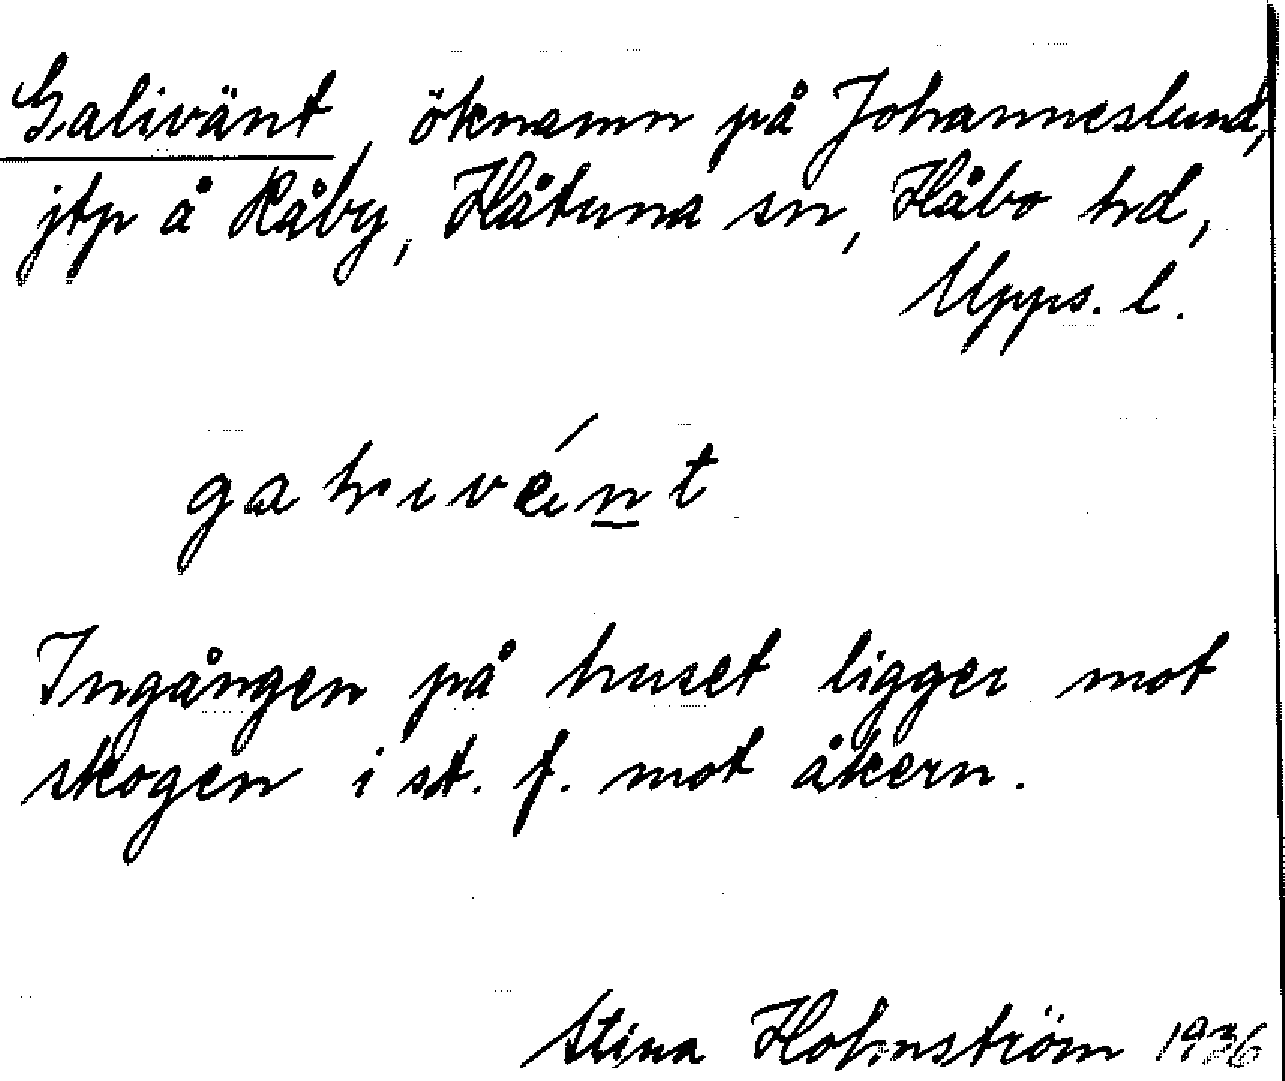 Galivänt, öknamn på Johanneslund,
jtp å Råby, Håtuna sn, Håbo hd,
Upps. l.
Ingången på huset ligger mot
skogen i st. f. mot åkern.
Stina Holmström 1936